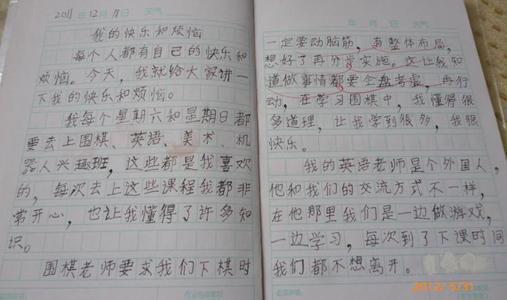 2011 年 12 月 11 日 天气
我的快乐和烦恼
每个人都有自己的快乐和
烦恼。今天,我就给大家讲一
下我的快乐和烦恼。
我每个星期六和星期日都
要去上围棋、英语、美术、机
器人兴趣班,这些都是我喜欢
的,每次去上这些课程我都非
常开心,也让我懂得了许多知
识。
围棋老师要求我们下棋时
年 月 日 天气
一定要动脑筋,有整体布局,
想好了再分步实施。这让我知
道做事情都要全盘考虑,再行
动,在学习围棋中,我懂得很
多道理,让我学到很多,我很
快乐。
我的英语老师是个外国人,
他和我们的交流方式不一样,
在他那里我们是一边做游戏,
一边学习,每次到了下课时间
我们都不想离开。
2012/5/31